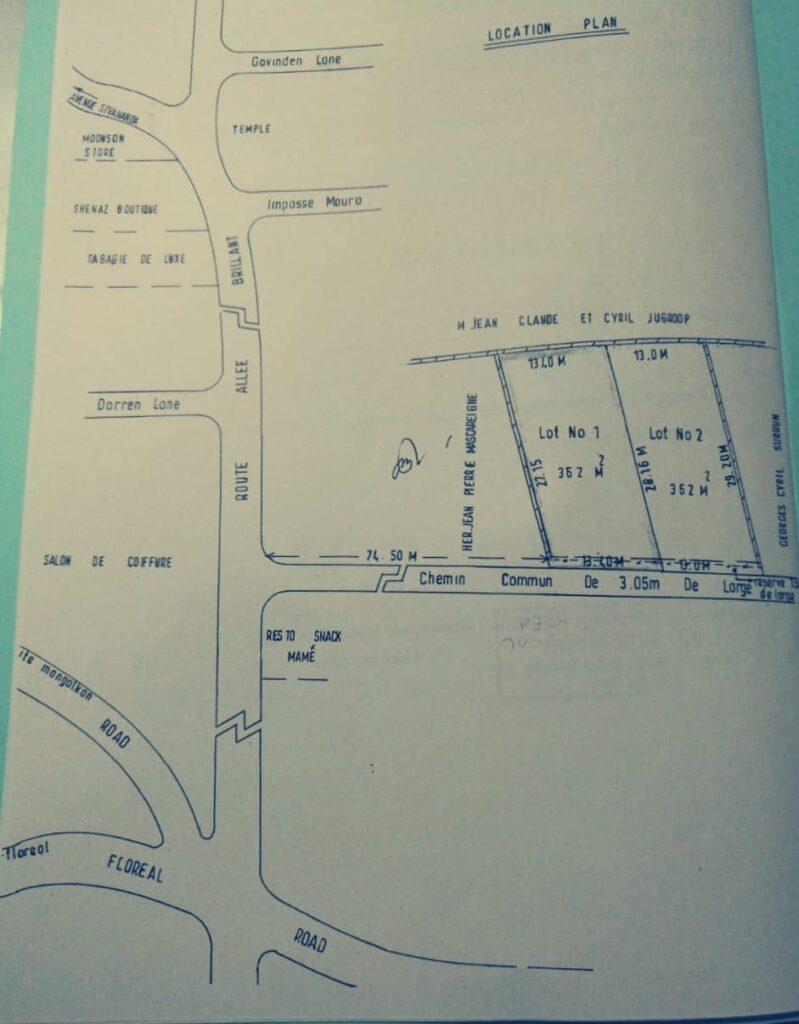 LOCATION PLAN
Govinden Lane
AVENUE SIVANANDA
TEMPLE
MOONSON
STORE
SHENAZ BOUTIQUE
Impasse Moura
TABAGIE DE LUXE
BRILLANT
M JEAN CLAUDE ET CYRIL JUGROOP
13.40 M
13.0 M
ALLEE
Darren Lane
HER. JEAN PIERRE MASCAREIGNE
Lot No 1
Lot No 2
GEORGES CYRIL SURRUN
362 M2
362 M2
27.15
28.16 M
29.20M
ROUTE
74.50 M
13.40M
13.0M
SALON DE COIFFURE
Chemin Commun De 3.05m De Large
reserve
de large
RESTO SNACK
MAMÉ
ROAD
Floreal
FLOREAL
ROAD